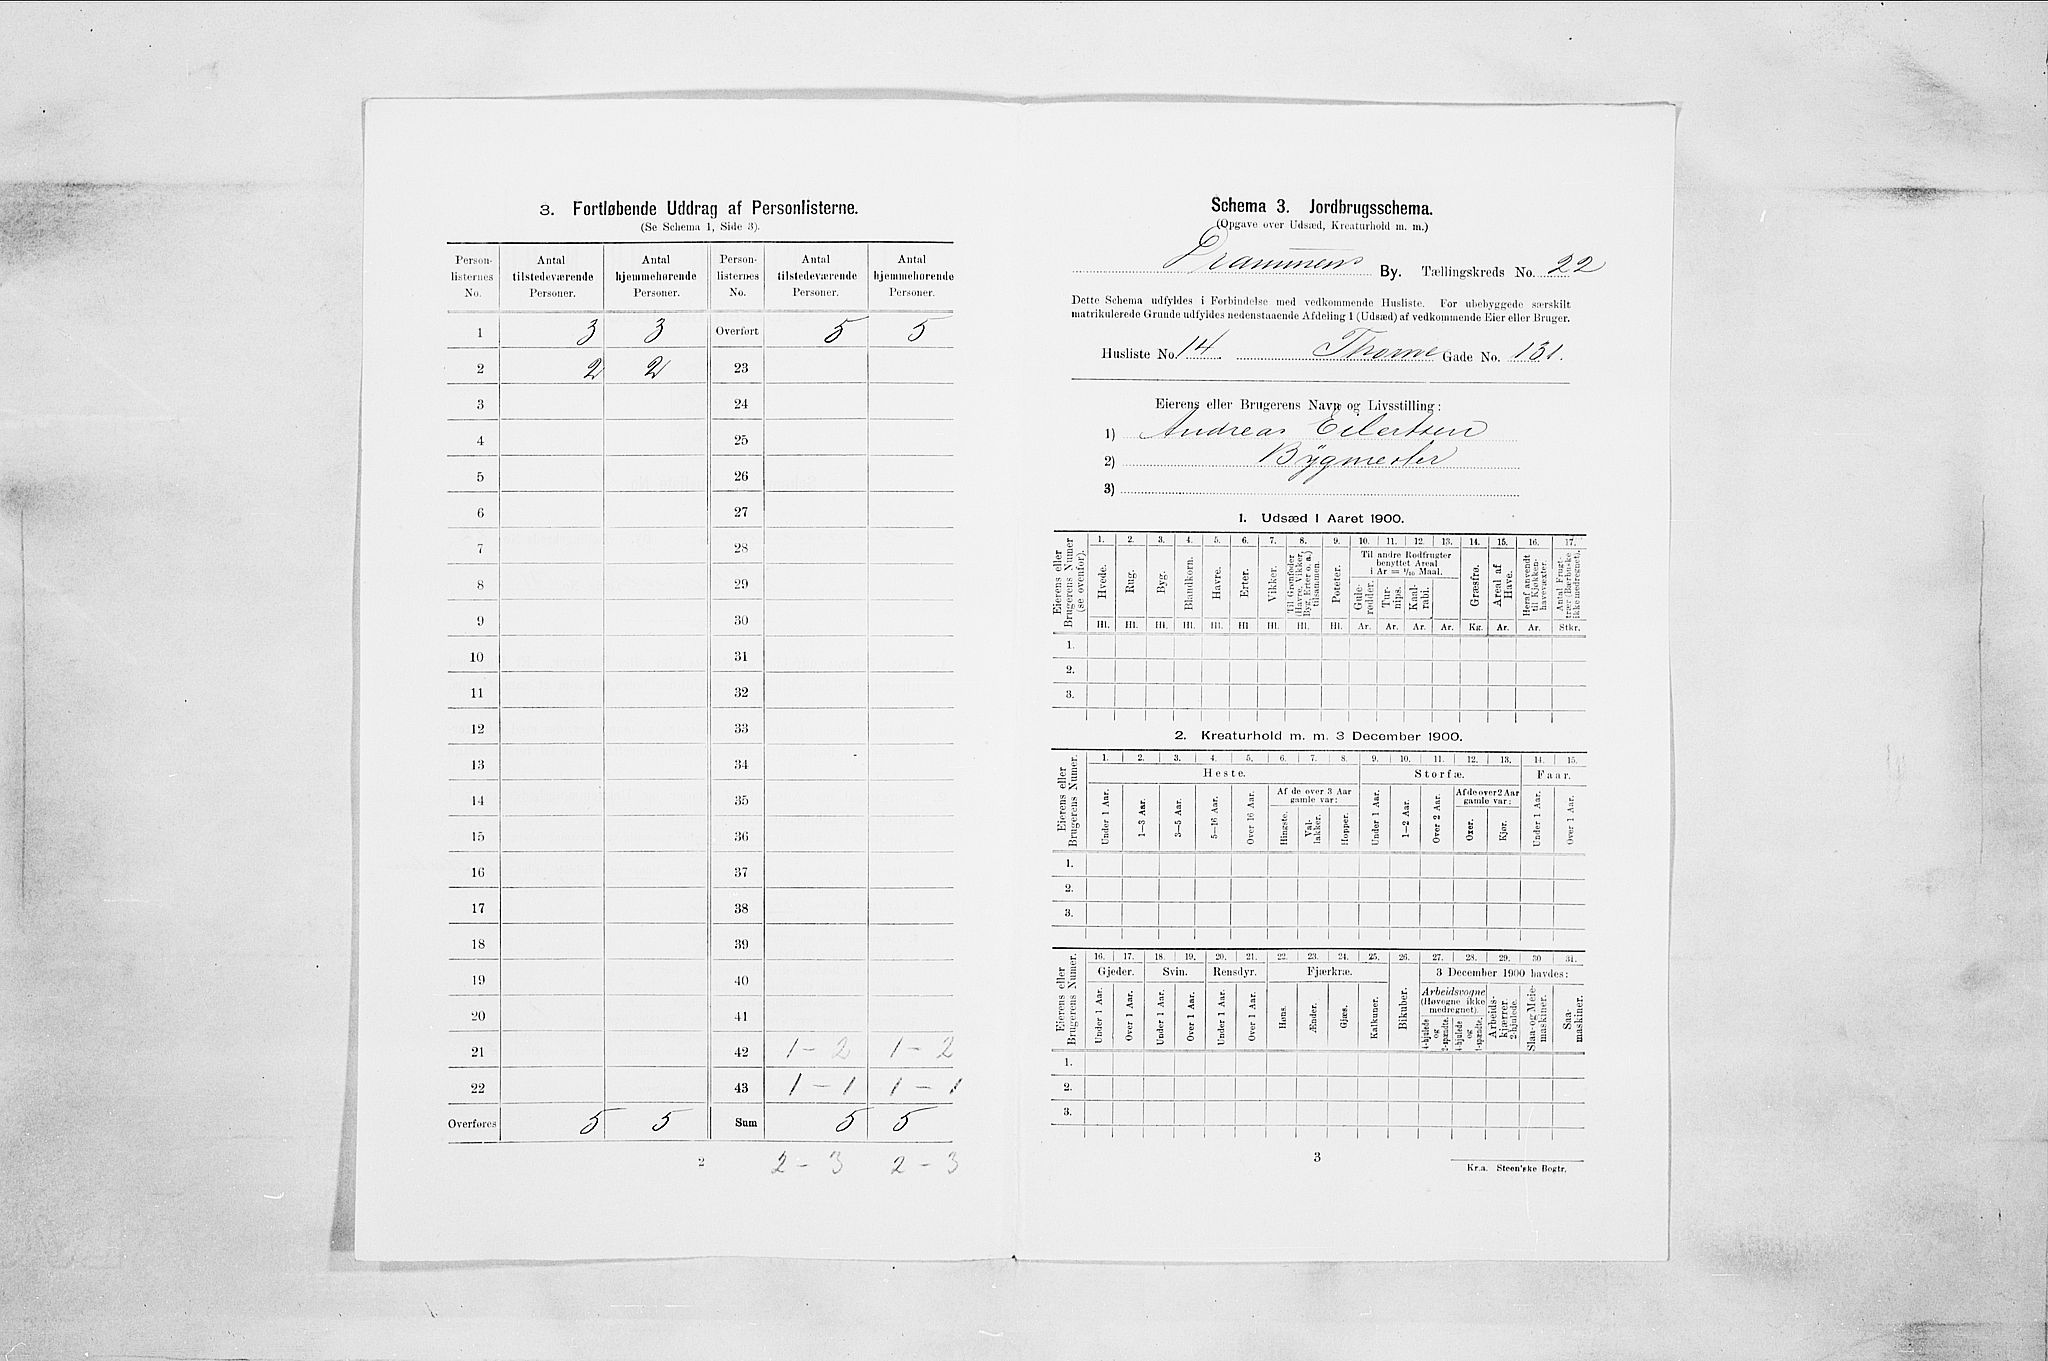 3. Fortløbende Uddrag af Personlisterne.
(Se Schema 1, Side 3).
Person-listernes No. | Antal tilstedeværende Personer. | Antal hjemmehørende Personer. | Person-listernes No. | Antal tilstedeværende Personer. | Antal hjemmehørende Personer.
1 3 3 Overført 5 5
2 2 2 23
3 24
4 25
5 26
6 27
7 28
8 29
9 30
10 31
11 32
12 33
13 34
14 35
15 36
16 37
17 38
18 39
19 40
20 41
21 42 1-2 1-2
22 43 1-1 1-1
Overføres 5 5 Sum 5 5
2 2-3 2-3
Schema 3. Jordbrugsschema.
(Opgave over Udsæd, Kreaturhold m. m.)
Drammens By. Tællingskreds No. 22
Dette Schema udfyldes i Forbindelse med vedkommende Husliste. For ubebyggede særskilt
matrikulerede Grunde udfyldes nedenstaaende Afdeling 1 (Udsæd) af vedkommende Eier eller Bruger.
Husliste No. 14. Thorne Gade No. 131.
Eierens eller Brugerens Navn og Livsstilling:
1) Andreas Eilertsen
2) Bygmester
3)
1. Udsæd i Aaret 1900.
Eierens eller Brugerens Numer (se ovenfor).
1. 2. 3. 4. 5. 6. 7. 8. 9. 10. 11. 12. 13. 14. 15. 16. 17.
Hvede. Rug. Byg. Blandkorn. Havre. Erter. Vikker. Til Grønfoder (Havre, Vikker, Byg, Erter o. a.) tilsammen. Poteter.
Til andre Rodfrugter benyttet Areal i Ar = 1/10 Maal.
Gule-rødder. Tur-nips. Kaal-rabi. Græsfrø. Areal af Have. Heraf anvendt til Kjøkken-havevæxter. Antal Frugt-trær (Bærbuske ikke medregnet).
Hl. Hl. Hl. Hl. Hl. Hl. Hl. Hl. Hl. Ar. Ar. Ar. Ar. Kg. Ar. Ar. Stkr.
1.
2.
3.
2. Kreaturhold m. m. 3 December 1900.
Eierens eller Brugerens Numer.
1. 2. 3. 4. 5. 6. 7. 8. 9. 10. 11. 12. 13. 14. 15.
Heste. Storfæ. Faar.
Af de over 3 Aar gamle var: Af de over 2 Aar gamle var:
Under 1 Aar. 1—3 Aar. 3—5 Aar. 5—16 Aar. Over 16 Aar. Hingste. Val-lakker. Hopper. Under 1 Aar. 1—2 Aar. Over 2 Aar. Oxer. Kjør. Under 1 Aar. Over 1 Aar.
1.
2.
3.
Eierens eller Brugerens Numer.
16. 17. 18. 19. 20. 21. 22. 23. 24. 25. 26. 27. 28. 29. 30 31.
Gjeder. Svin. Rensdyr. Fjærkræ. Bikuber. 3 December 1900 havdes:
Under 1 Aar. Over 1 Aar. Under 1 Aar. Over 1 Aar. Under 1 Aar. Over 1 Aar. Høns. Ænder. Gjæs. Kalkuner.
Arbeidsvogne (Høvogne ikke medregnet).
4-hjulede og 2-spændte. 4-hjulede og 1-spændte. Arbeids-kjærrer. 2-hjulede. Slaa- og Meie-maskiner. Saa-maskiner.
1.
2.
3.
3
Kr.a. Steen'ske Bogtr.